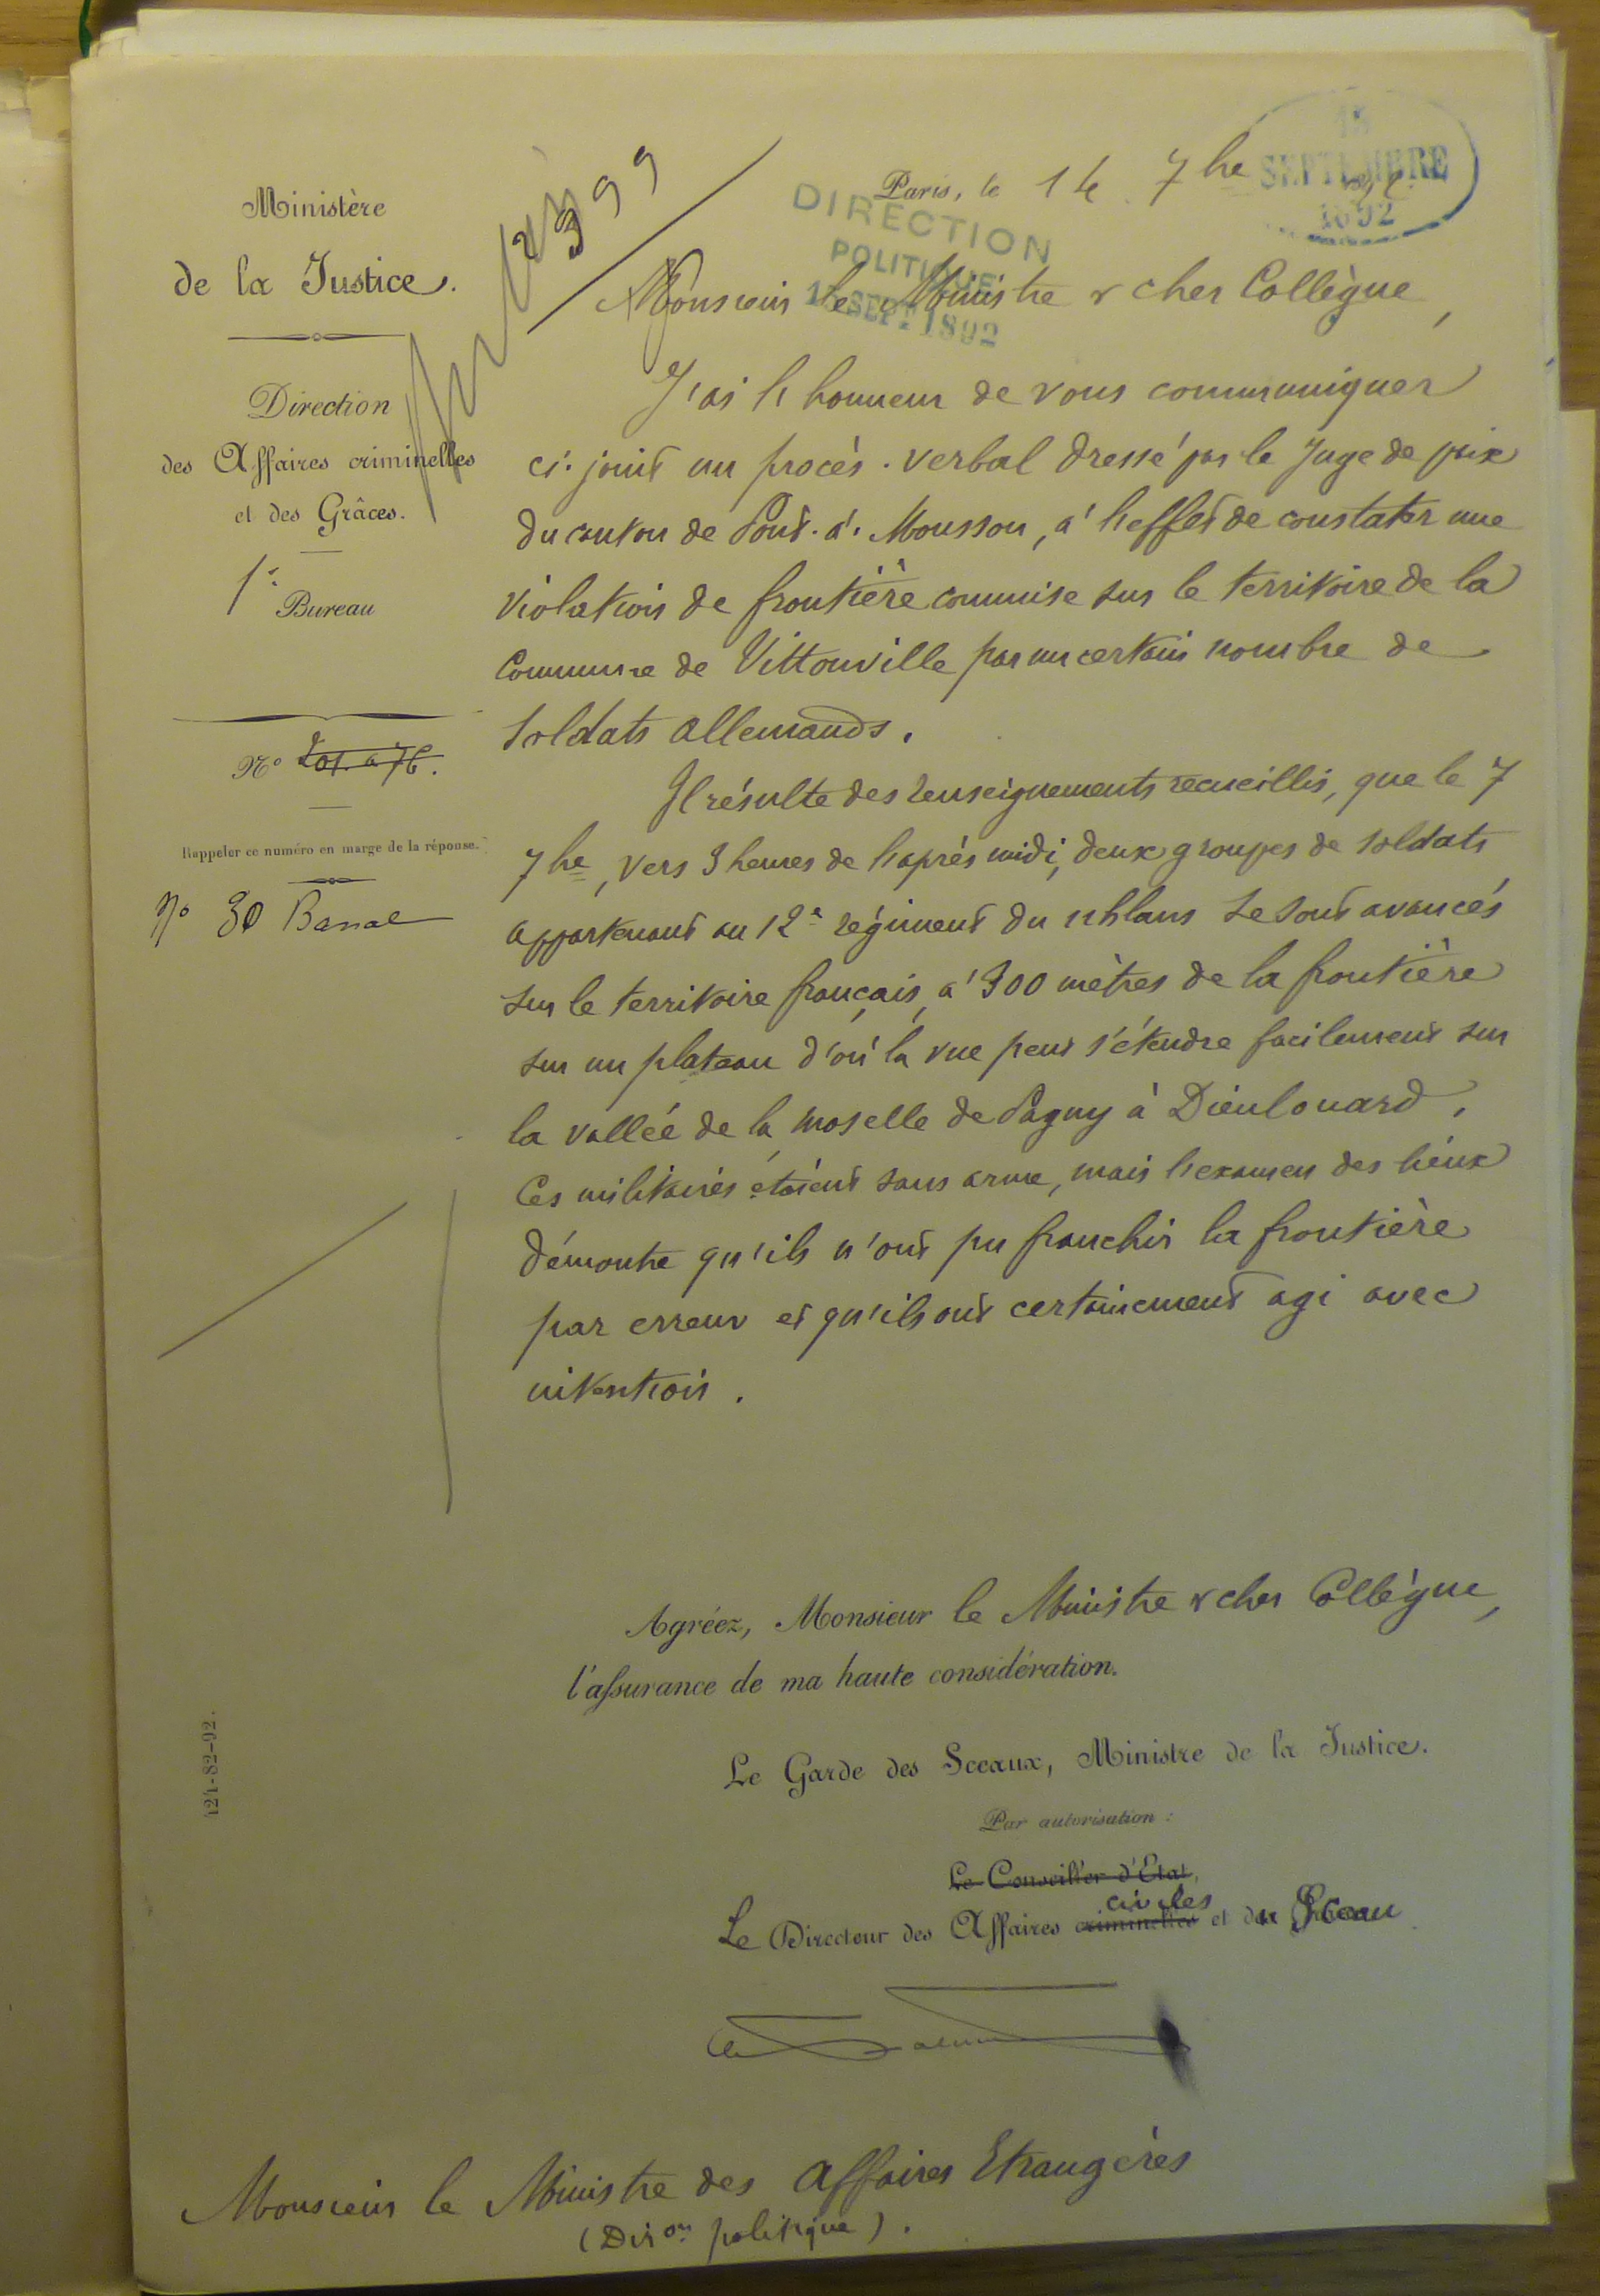 Ministère
de la Justice.
Direction
des Affaires criminelles
et des Grâces.
1er Bureau
N° 201. a 76.
Rappeler ce numéro en marge de la réponse.
N° 30 Banal
399
Paris, le 14 7bre
SEPTEMBRE
1892
DIRECTION
POLITIQUE
SEPT 1892
Monsieur le Ministre & cher Collègue,
J'ai l'honneur de vous communiquer
ci-joint un procès-verbal dressé par le Juge de paix
du canton de Pont-à-Mousson, à l'effet de constater une
violation de frontière commise sur le territoire de la
Commune de Vittonville par un certain nombre de
soldats allemands.
Il résulte des renseignements recueillis, que le 7
7bre, vers 3 heures de l'après midi, deux groupes de soldats
appartenant au 12e régiment du uhlans se sont avancés
sur le territoire français, à 300 mètres de la frontière
sur un plateau d'où la vue peut s'étendre facilement sur
la vallée de la Moselle de Pagny à Dieulouard.
Ces militaires étaient sans arme, mais l'examen des lieux
démontre qu'ils n'ont pu franchir la frontière
par erreur et qu'ils ont certainement agi avec
intention.
Agréez, Monsieur le Ministre & cher Collègue,
l'assurance de ma haute considération.
Le Garde des Sceaux, Ministre de la Justice.
Par autorisation :
Le Conseiller d'Etat,
civiles
Le Directeur des Affaires criminelles et du Sceau
Monsieur le Ministre des Affaires Etrangères
(Diron politique).
121-82-92.